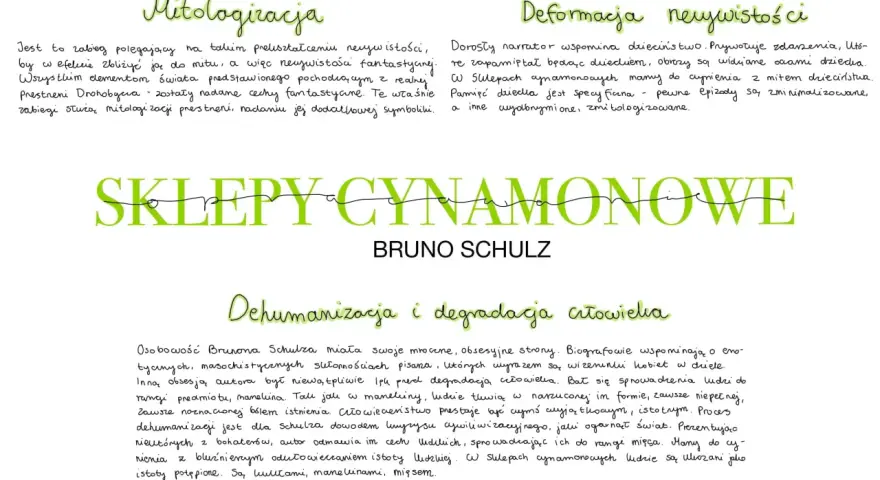 Mitologizacja
Jest to zabieg polegający na takim przekształceniu rzeczywistości,
by w efekcie zbliżyć ją do mitu, a więc rzeczywistości fantastycznej.
Wszystkim elementom świata przedstawionego pochodzącym z realnej
przestrzeni Drohobycza - zostały nadane cechy fantastyczne. Te właśnie
zabiegi służą mitologizacji przestrzeni, nadaniu jej dodatkowej symboliki.
Deformacja rzeczywistości
Dorosły narrator wspomina dzieciństwo. Przywołuje zdarzenia, któ-
re zapamiętał będąc dzieckiem, obrazy są widziane oczami dziecka.
W Sklepach cynamonowych mamy do czynienia z mitem dzieciństwa.
Pamięć dziecka jest specyficzna - pewne epizody są zminimalizowane,
a inne wyolbrzymione, zmitologizowane.
SKLEPY CYNAMONOWE
opracowanie
BRUNO SCHULZ
Dehumanizacja i degradacja człowieka
Osobowość Brunona Schulza miała swoje mroczne, obsesyjne strony. Biografowie wspominają o ero-
tycznych, masochistycznych skłonnościach pisarza, których wyrazem są wizerunki kobiet w dziele.
Inną obsesją autora był niewątpliwie lęk przed degradacją człowieka. Bał się sprowadzenia ludzi do
rangi przedmiotu, manekina. Tak jak w manekiny, ludzie tkwią w narzuconej im formie, zawsze niepełnej,
zawsze naznaczonej bólem istnienia. Człowieczeństwo przestaje być czymś wyjątkowym, istotnym. Proces
dehumanizacji jest dla Schulza dowodem kryzysu cywilizacyjnego, jaki ogarnął świat. Prezentując
niektórych z bohaterów, autor odmawia im cech ludzkich, sprowadzając ich do rangi mięsa. Mamy do czy-
nienia z bluźnierczym odczłowieczaniem istoty ludzkiej. W Sklepach cynamonowych ludzie są ukazani jako
istoty potępione. Są kukłami, manekinami, mięsem.